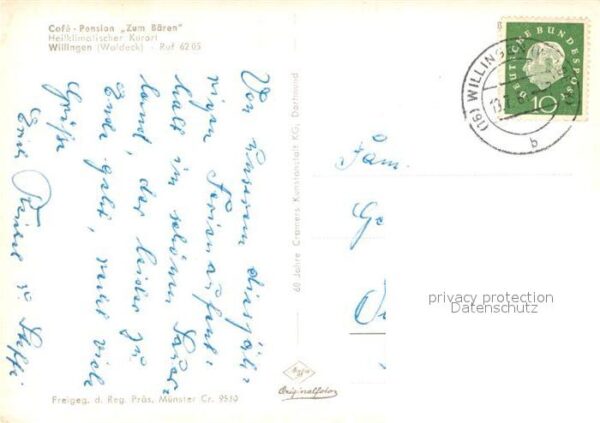 Café - Pension „Zum Bären"
Heilklimatischer Kurort
Willingen (Waldeck) - Ruf 6205
Von unserem diesjäh-
rigen Ferienaufent-
halt im schönen Sauer-
land, der leider zu
Ende geht, viele
Grüße
Erich
60 Jahre Cramers Kunstanstalt KG, Dortmund
Freigeg. d. Reg. Präs. Münster Cr. 9550
Originalfoto
DEUTSCHE BUNDESPOST
10
(16) WILLINGEN
b
Fam.
privacy protection
Datenschutz